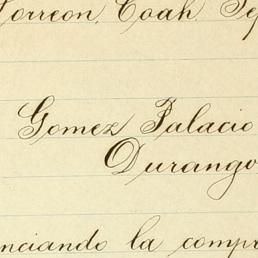 Torreon, Coah Sep
Gomez Palacio
Durango
nciando la compr